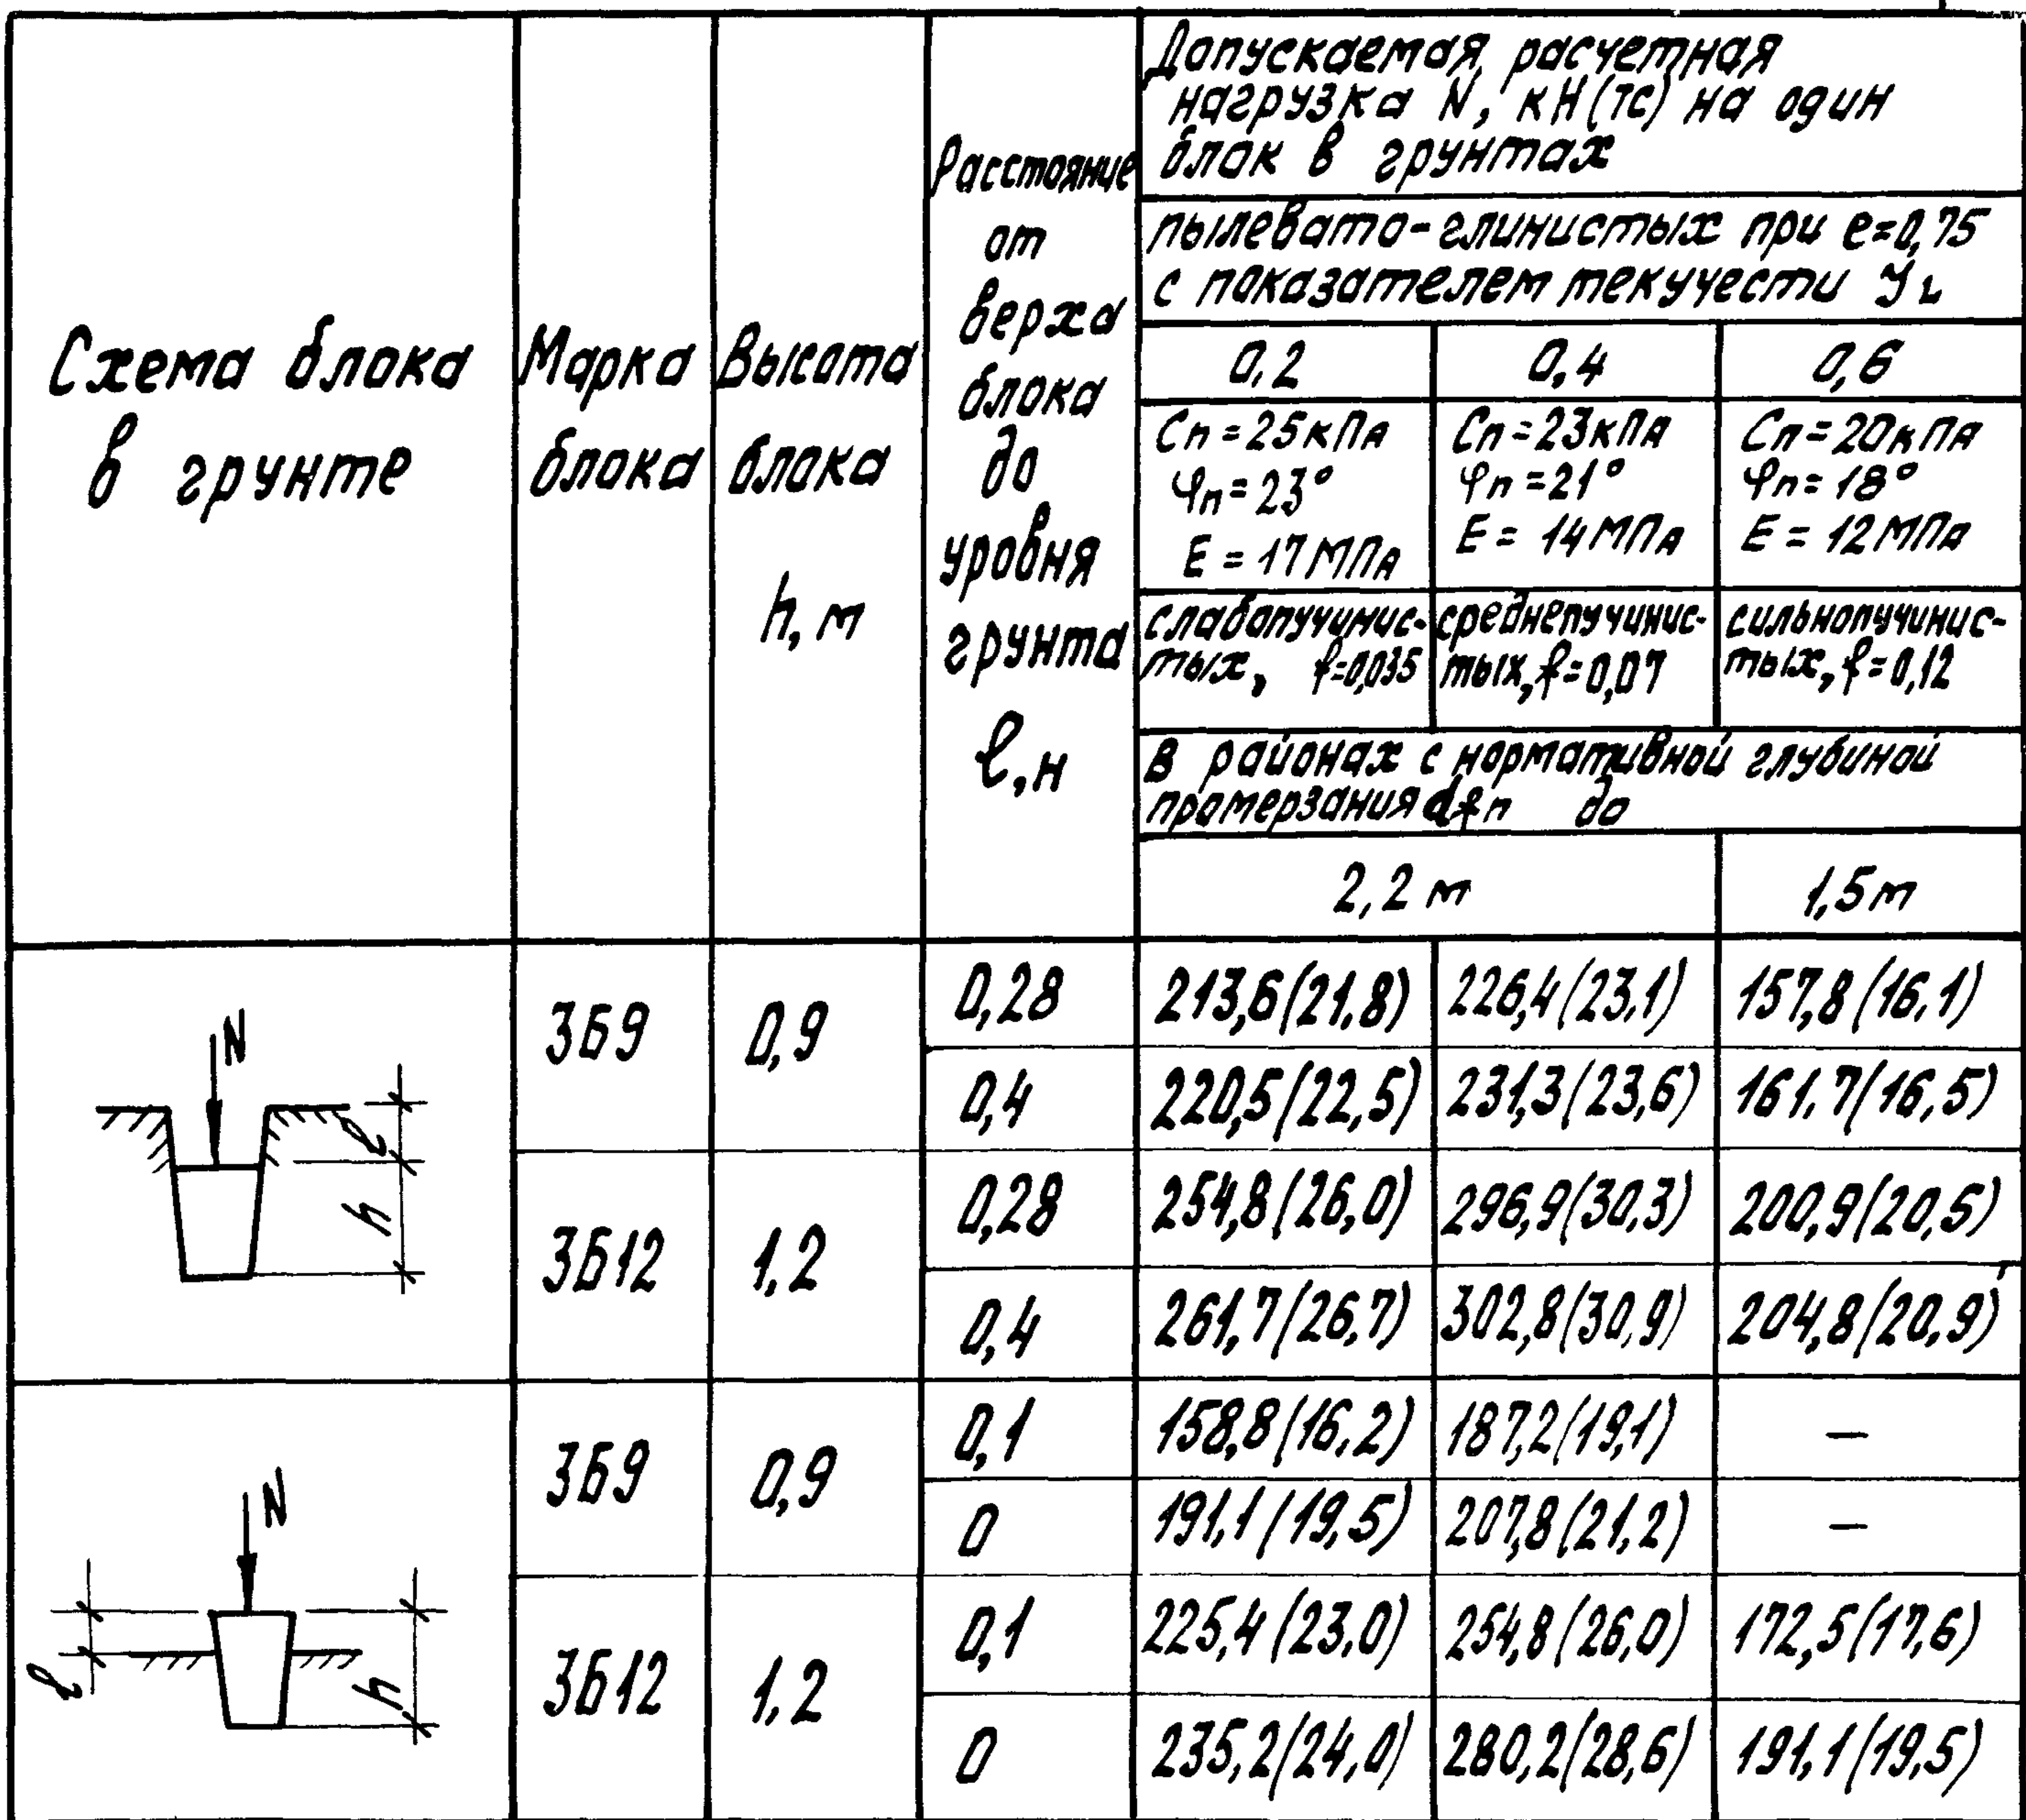 Схема блока
в грунте
Марка
блока
Высота
блока
h, м
Расстояние
от
верха
блока
до
уровня
грунта
ℓ, н
Допускаемая расчетная
нагрузка N, кН(тс) на один
блок в грунтах
пылевато-глинистых при e=0,75
с показателем текучести YL
0,2
0,4
0,6
Cп=25кПа
φп=23°
E=17МПа
Cп=23кПа
φп=21°
E= 14МПа
Cп=20кПа
φп=18°
E= 12МПа
слабопучинис-
тых, f=0,035
среднепучинис-
тых, f=0,07
сильнопучинис-
тых, f=0,12
в районах с нормативной глубиной
промерзания dfn до
2,2 м
1,5м
N
ℓ
h
3Б9
0,9
0,28
213,6(21,8)
226,4(23,1)
157,8(16,1)
0,4
220,5(22,5)
231,3(23,6)
161,7(16,5)
3Б12
1,2
0,28
254,8(26,0)
296,9(30,3)
200,9(20,5)
0,4
261,7(26,7)
302,8(30,9)
204,8(20,9)
N
ℓ
h
3Б9
0,9
0,1
158,8(16,2)
187,2(19,1)
—
0
191,1(19,5)
207,8(21,2)
—
3Б12
1,2
0,1
225,4(23,0)
254,8(26,0)
172,5(17,6)
0
235,2(24,0)
280,2(28,6)
191,1(19,5)